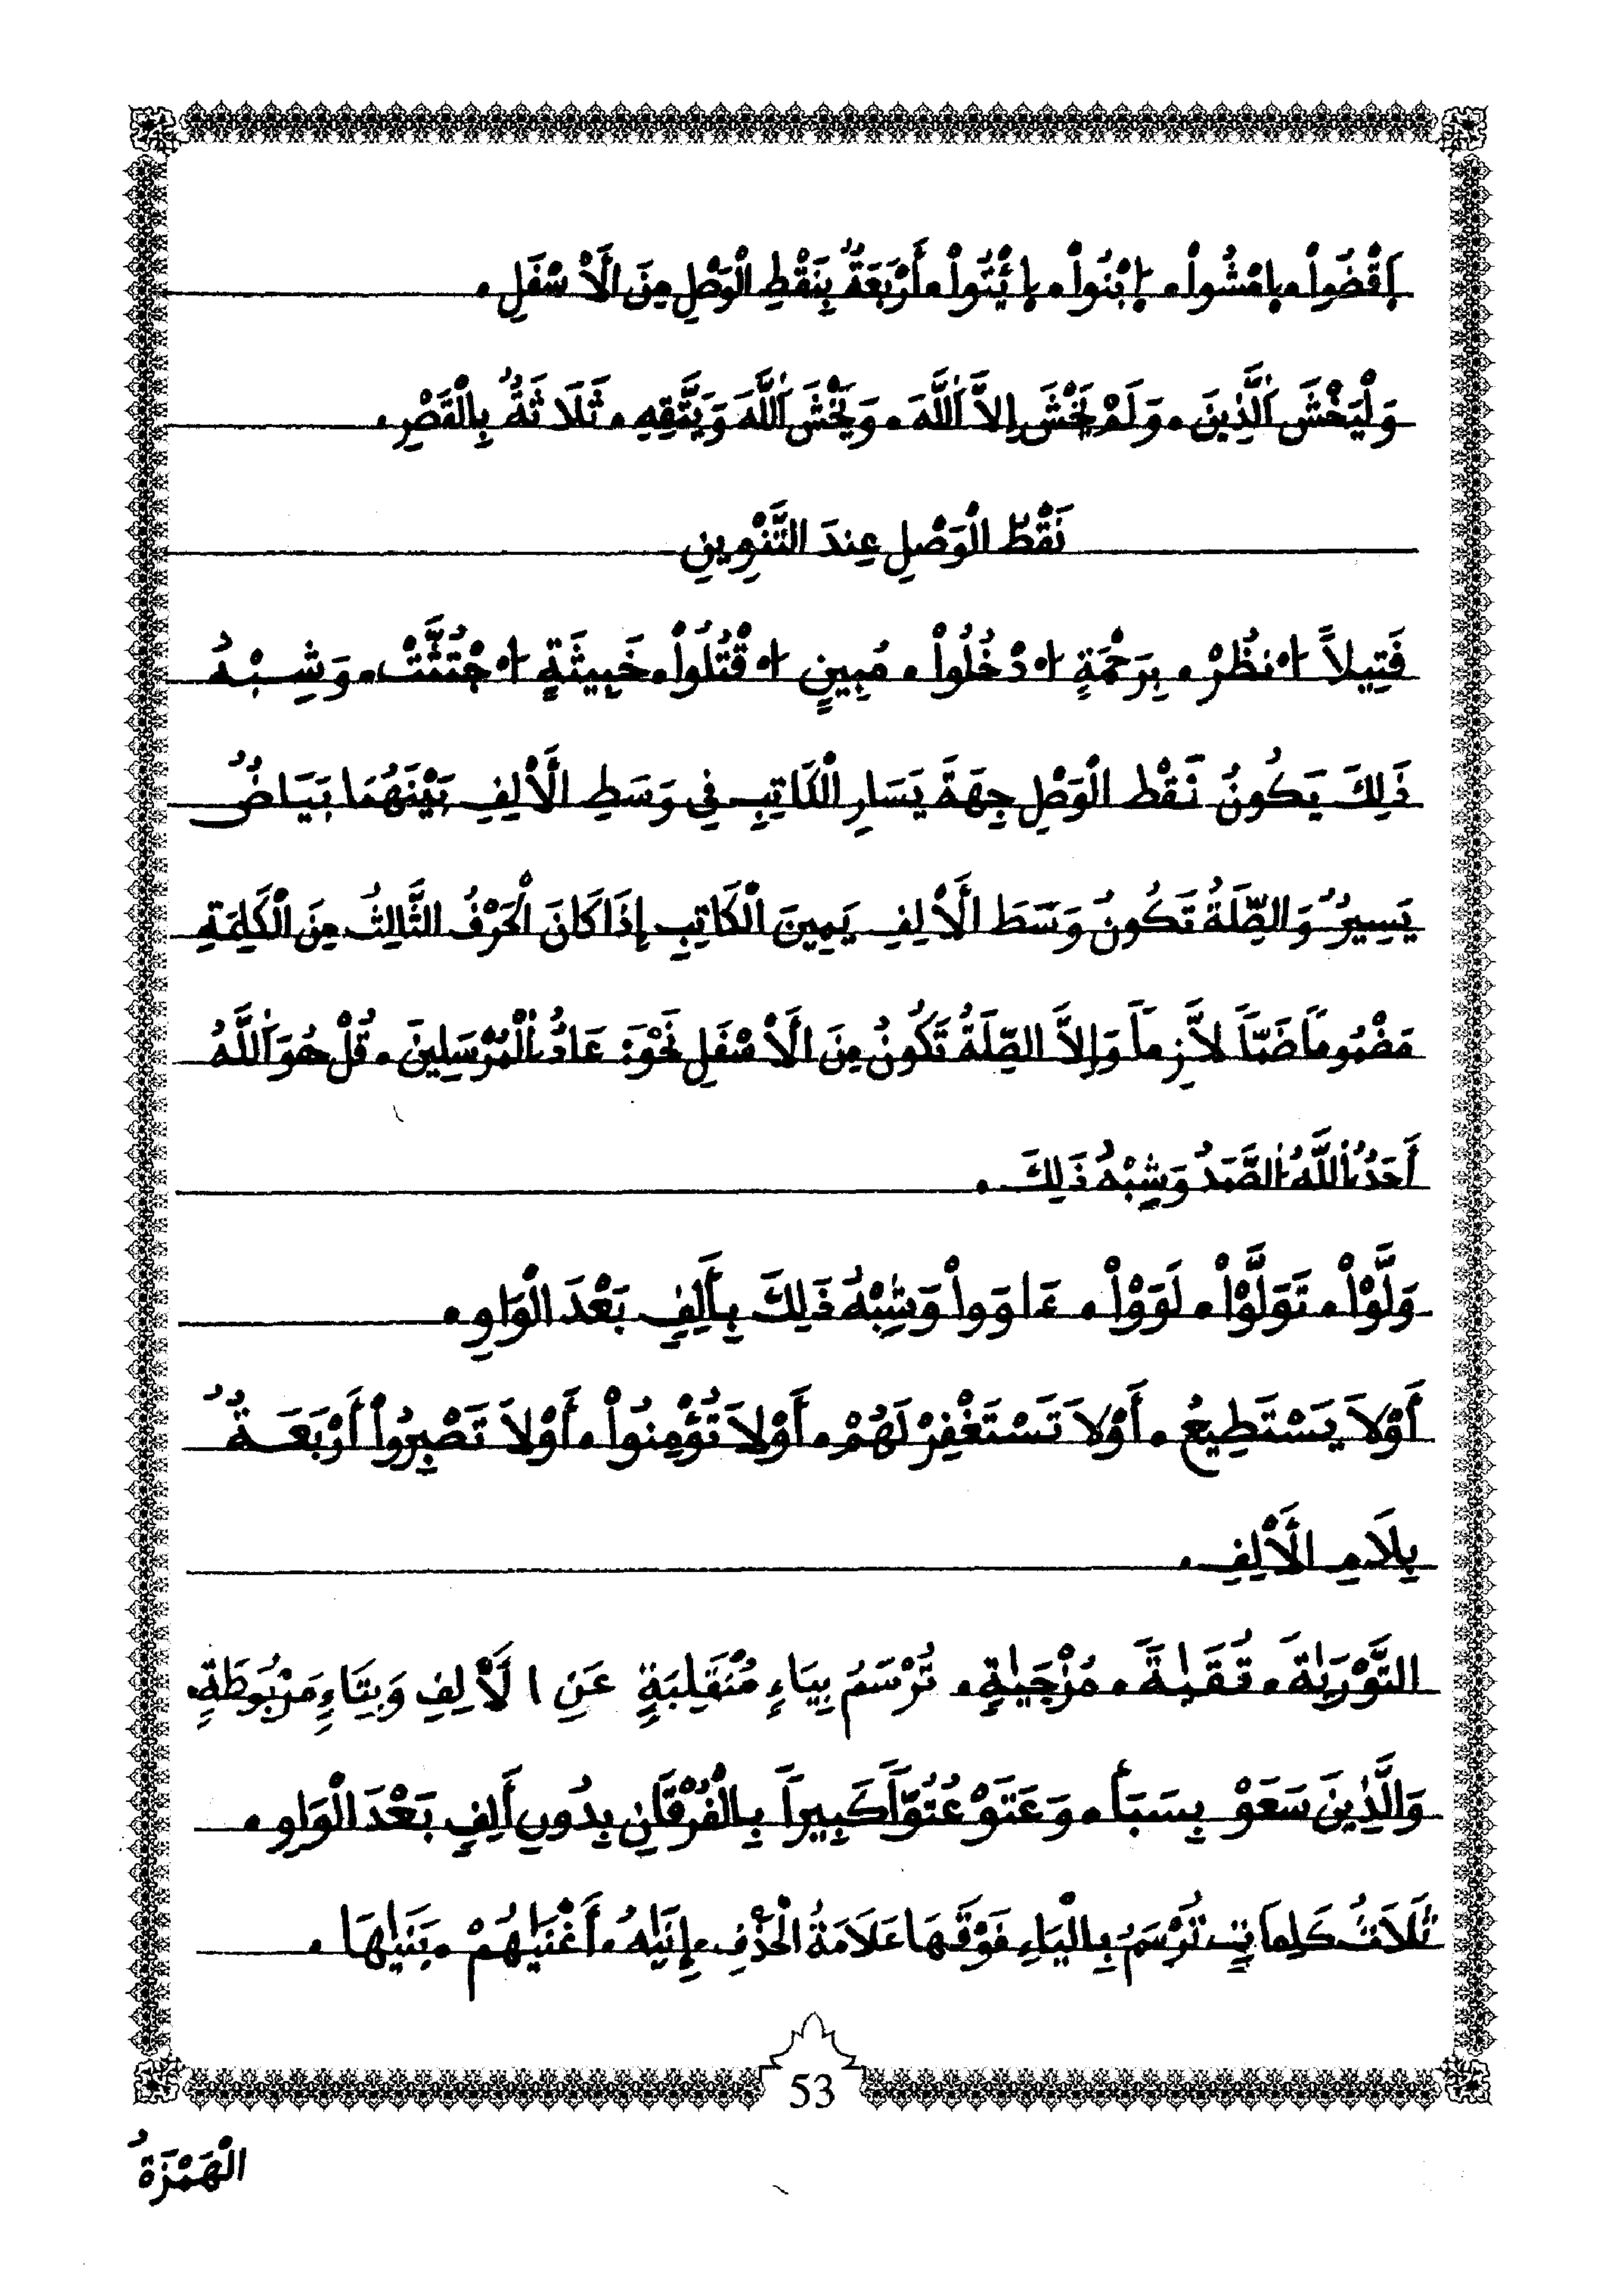 اِقْضُواْ. اِمْشُواْ. اِبْنُواْ. اِئْتُواْ. أَرْبَعَةٌ بِنَقْطِ الْوَصْلِ مِنَ الَأسْفَلِ.
وَلْيَخْشَ اَلَّذِينَ. وَلَمْ يَخْشَ إِلاَّ اَللَّهَ. وَيَخْشَ اَللَّهَ وَيَتَّقِهِ. ثَلَاثَةٌ بِالْقَصْرِ.
نَقْطُ الْوَصْلِ عِندَ التَّنْوِينِ
فَتِيلاً ا۟نظُرْ. بِرَحْمَةٍ ا۟دْخُلُواْ. مُبِينٍ ا۟قْتُلُواْ. خَبِيثَةٍ ا۟جْتُثَّتْ. وَشِبْهُ
ذَلِكَ يَكُونُ نَقْط الْوَصْلِ جِهَةَ يَسَارِ الْكَاتِبِ فِي وَسَطِ الَأْلِفِ بَيْنَهُمَا بَيَاضٌ
يَسِيرٌ وَالصِّلَةُ تَكُونُ وَسَطَ الَأْلِفِ يَمِينَ الْكَاتِبِ إِذَا كَانَ الْحَرْفُ الثَّالِثُ مِنَ الْكَلِمَةِ
مَضْمُوماً ضَمّاً لاَّزِماً وَإِلاَّ الصِّلَةُ تَكُونُ مِنَ الَأسْفَلِ نَحْوَ: عَادٌ اِلْمُرْسَلِينَ. قُلْ هُوَ اَللَّهُ
أَحَدٌ اِللَّهُ اُلصَّمَدُ وَشِبْهُ ذَلِكَ.
وَلَّوْاْ. تَوَلَّوْاْ. لَوَوْاْ. ءَاوَواْ وَشِبْهُ ذَلِكَ بِأَلِفٍ بَعْدَ الْوَاوِ.
أَوْلاَ يَسْتَطِيعُ. أَوْلاَ تَسْتَغْفِرْ لَهُمْ. أَوْلاَ تُؤْمِنُواْ. أَوْلاَ تَصْبِرُواْ أَرْبَعَةٌ
بِلَامِ الَأْلِفِ.
التَّوْرَيٰةَ. تُقَيٰةً. مُزْجَيٰةٍ. تُرْسَمُ بِيَاءٍ مُنْقَلِبَةٍ عَنِ الَأْلِفِ وَبِتَاءٍ مَرْبُوطَةٍ.
وَالَّذِينَ سَعَوْ بِسَبَأ. وَعَتَوْ عُتُوّاً كَبِيراً بِالْفُرْقَانِ بِدُونِ أَلِفٍ بَعْدَ الْوَاوِ.
ثَلَاثُ كَلِمَاتٍ تُرْسَمُ بِالْيَاءِ فَوْقَهَا عَلَامَةُ الْحَذْفِ. إِنَيٰهُ. أَغْنَيٰهُمْ. بَنَيٰهَا.
53
الْهَمْزَةُ